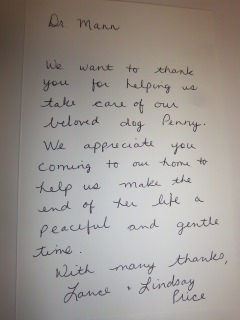 Dr. Mann
We want to thank
you for helping us
take care of our
beloved dog Penny.
We appreciate you
coming to our home to
help us make the
end of her life a
peaceful and gentle
time.
With many thanks,
Lance & Lindsay
Price